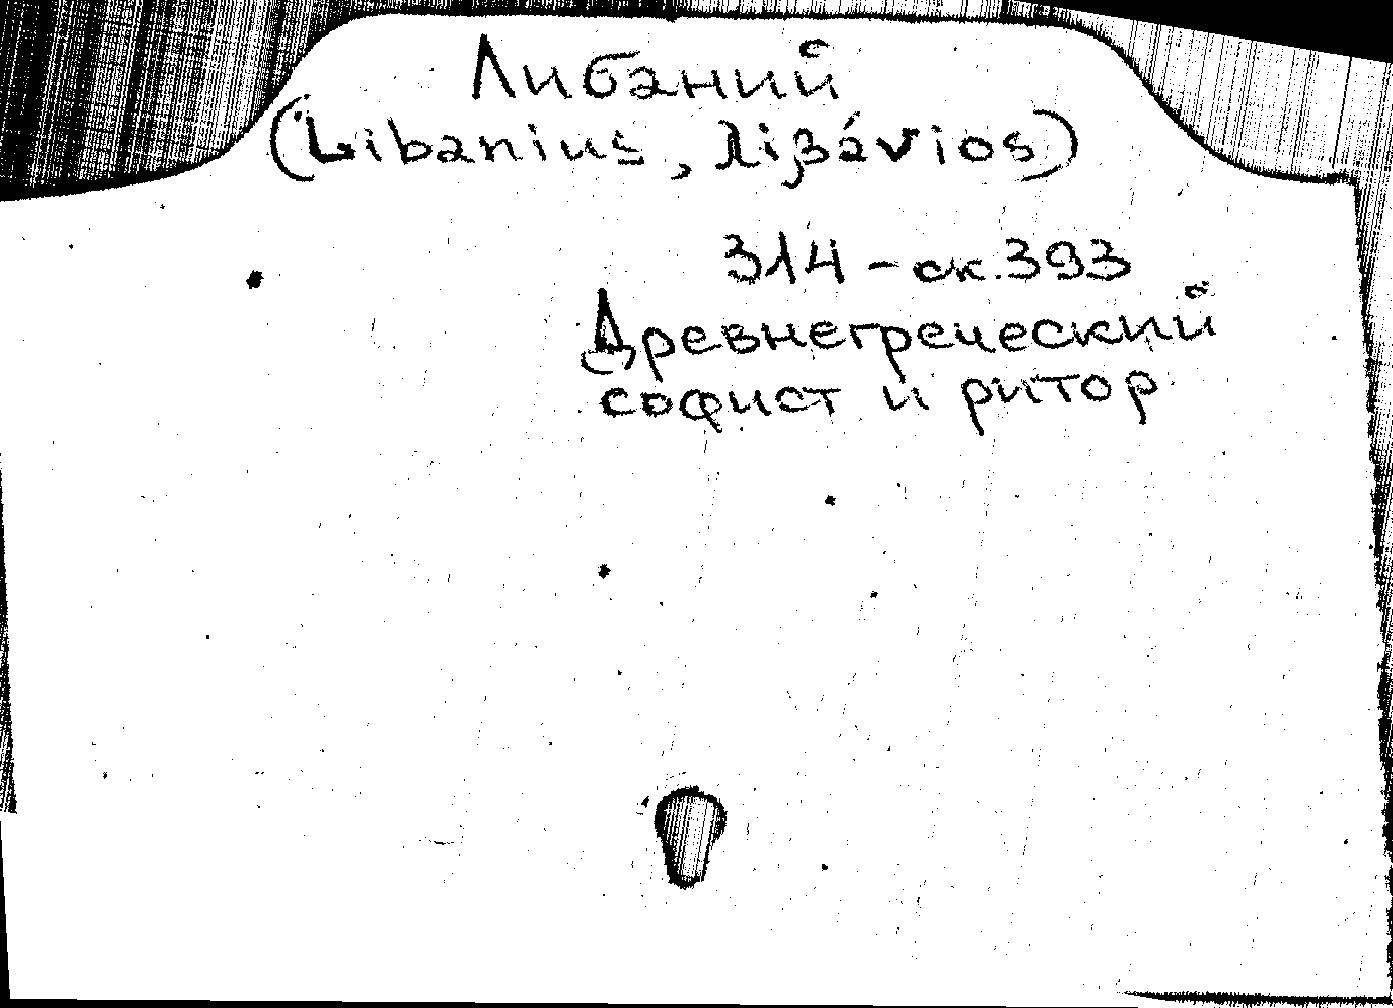 Либаний
(Libanius, Λιβάνιos)
314 – ок. 393
Древнегреческий
софист и ритор